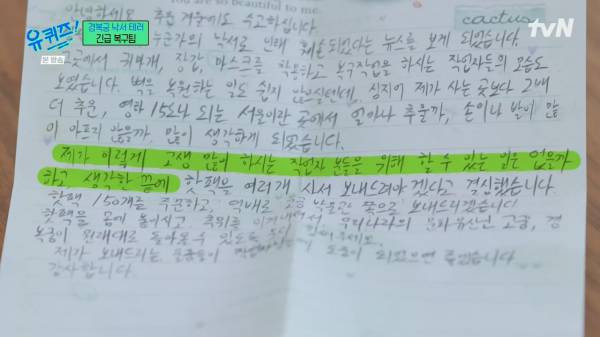 유퀴즈!
본 방송
경복궁 낙서 테러
긴급 복구팀
tvN
You are so beautiful to me.
cactus
안녕하세요? 추운 겨울에도 수고하십니다.
누군가의 낙서로 인해 훼손되었다는 뉴스를 보게 되었습니다.
그곳에서 귀마개, 장갑, 마스크를 착용하고 복구작업을 하시는 작업자들의 모습도
보였습니다. 벽을 복원하는 일도 쉽지 않으실텐데, 심지어 제가 사는 곳보다
더 추운, 영하 15도나 되는 서울이란 곳에서 얼마나 추울까, 손이나 발이 많
이 아프지 않을까 많이 생각하게 되었습니다.
제가 이렇게 고생 많이 하시는 작업자 분들을 위해 할 수 있는 일은 없을까
하고 생각한 끝에 핫팩을 여러개 사서 보내드려야겠다고 결심했습니다.
핫팩 150개를 주문하고, 택배로 고궁 박물관 쪽으로 보내드리겠습니다
핫팩을 몸에 붙이시고, 추위를 우리나라의 문화유산인 고궁, 경
복궁이 원래대로 돌아올 수 있도록
제가 보내드리는 도움이 되었으면 좋겠습니다
감사합니다.